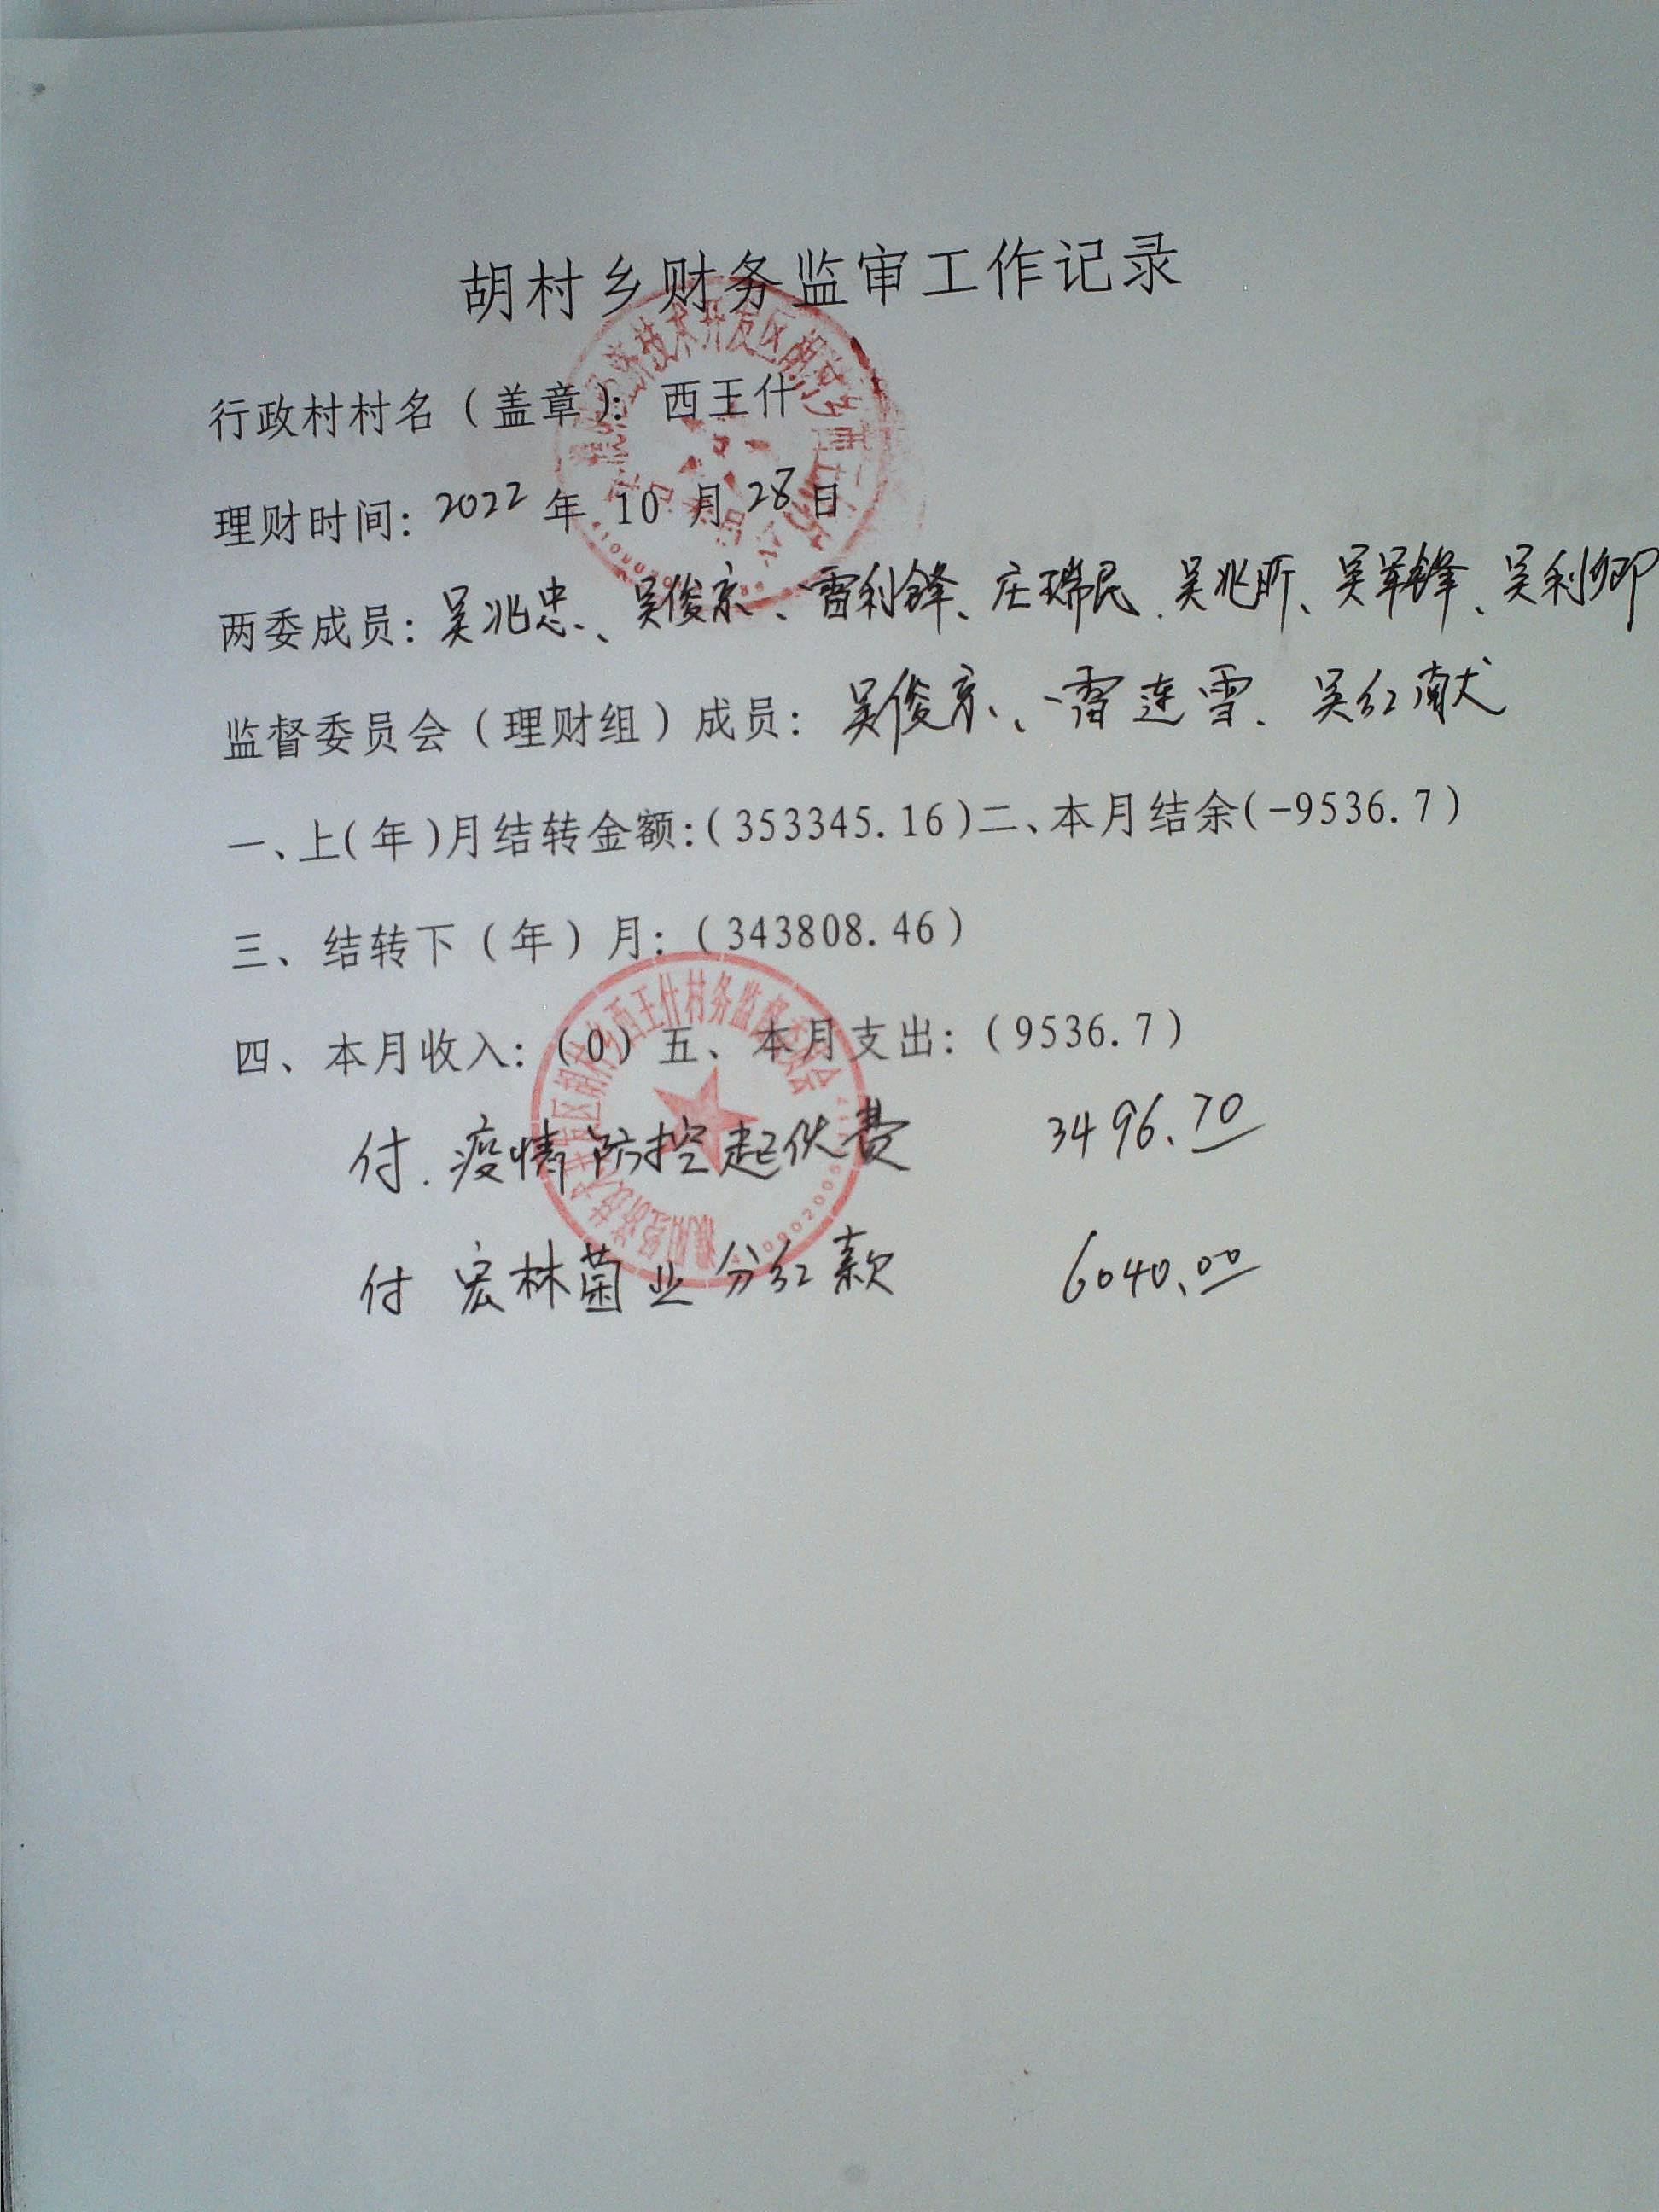 胡村乡财务监审工作记录
行政村村名（盖章）：西王什
理财时间：2022年 10 月28日
两委成员：吴兆忠、吴俊京、雷利锋、庄瑞民、吴兆昕、吴军锋、吴利卿
监督委员会（理财组）成员：吴俊京、雷连雪、吴红献
一、上(年)月结转金额:(353345.16)二、本月结余(-9536.7)
三、结转下（年）月：（343808.46）
四、本月收入:（0）五、本月支出:（9536.7）
付.疫情防控起伙费 3496.70
付 宏林菌业分红款 6040.00